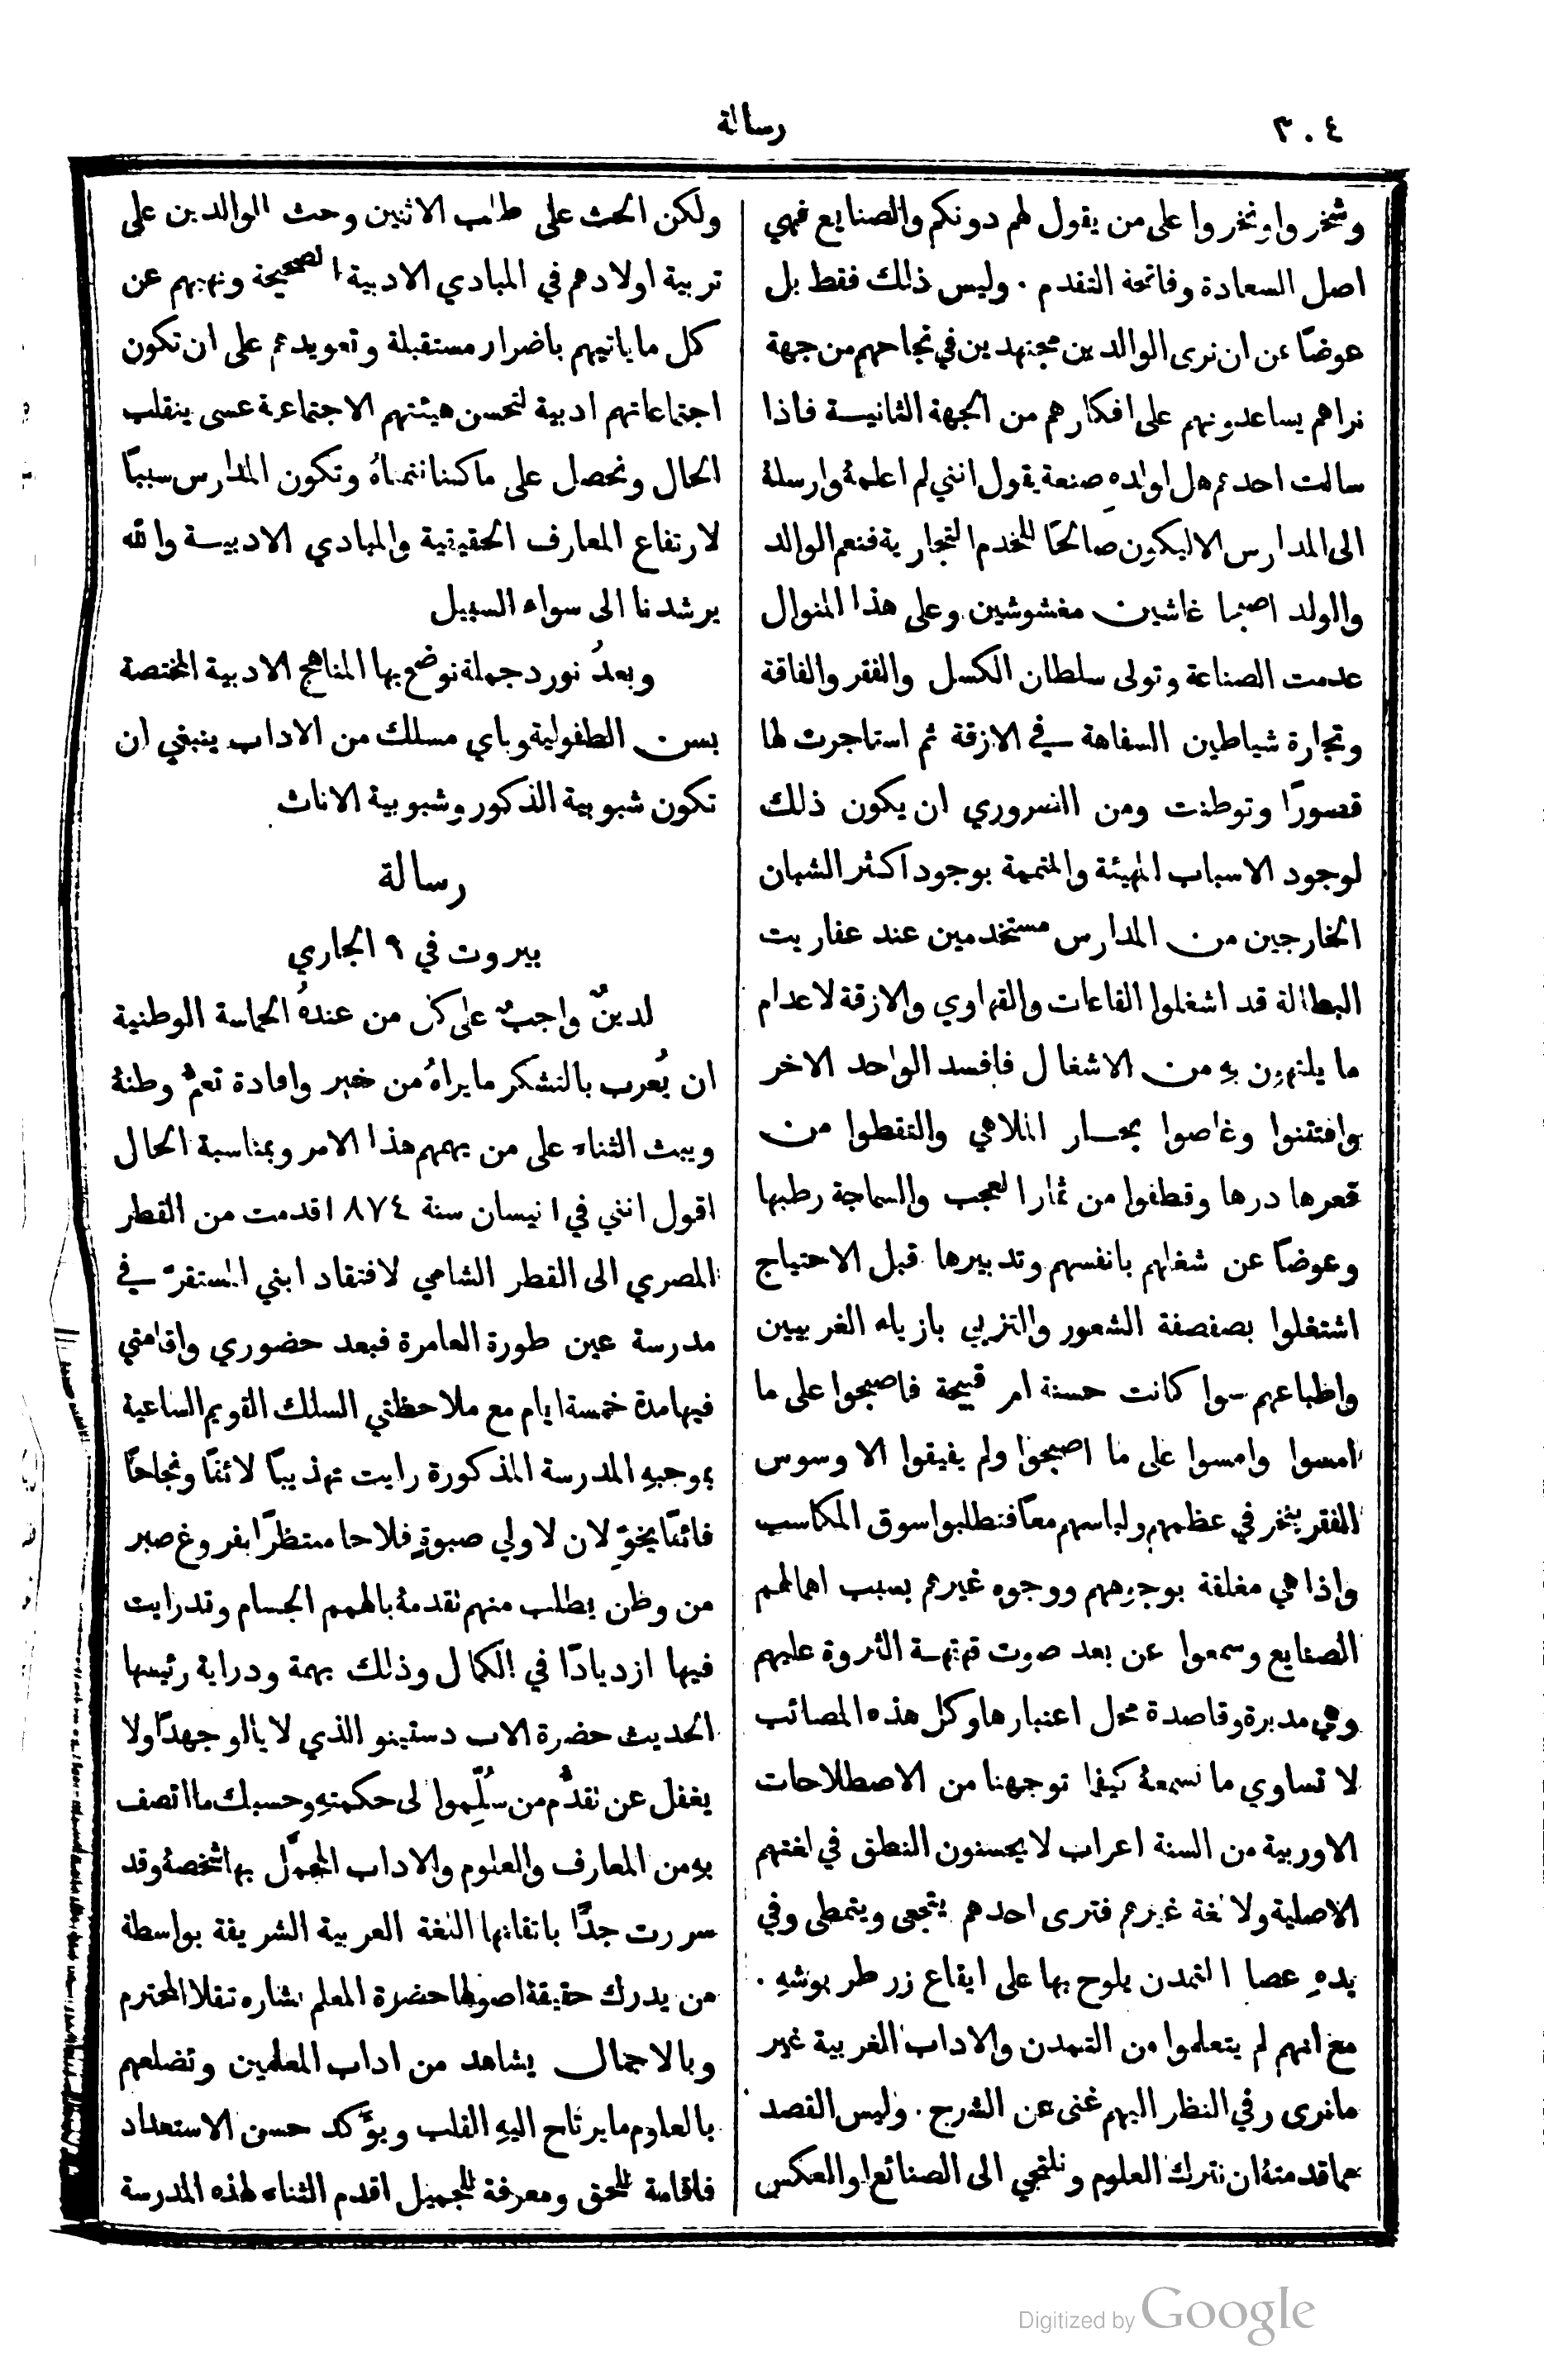 ٣٠٤
رسالة
وشخروا ونخروا على من يقول لهم دونكم والصنايع فهي
اصل السعادة وفاتحة التقدم . وليس ذلك فقط بل
عوضًا عن ان نرى الوالدين مجتهدين في نجاحهم من جهة
نراهم يساعدونهم على افكارهم من الجهة الثانية فاذا
سالت احدهم هل لولدهِ صنعة يقول انني لم اعلمهُ وارسلهُ
الى المدارس الا ليكون صالحًا للخدم التجارية فنعم الوالد
والولد اصبحا غاشين مغشوشين وعلى هذا المنوال
عدمت الصناعة وتولى سلطان الكسل والفقر والفاقة
وتجارة شياطين السفاهة في الازقة ثم استاجرت لها
قصورًا وتوطنت ومن الضروري ان يكون ذلك
لوجود الاسباب المهيئة والمتممة بوجود اكثر الشبان
الخارجين من المدارس مستخدمين عند عفاريت
البطالة قد اشغلوا القاعات والقهاوي والازقة لاعدام
ما يلتهون بهِ من الاشغال فافسد الواحد الاخر
وافتقنوا وغاصوا بحار الملاهي والتقطوا من
قعرها درها وقطفوا من ثمار العجب والسماجة رطبها
وعوضًا عن شغلهم بانفسهم وتدبيرها قبل الاحتياج
اشتغلوا بصفصفة الشعور والتزيي بازياء الغربيين
واطباعهم سوا كانت حسنة ام قبيحة فاصبحوا على ما
امسوا وامسوا على ما اصبحوا ولم يفيقوا الا وسوس
الفقر ينخر في عظمهم ولباسهم معًا فتطلبوا سوق المكاسب
واذا هي مغلقة بوجوههم ووجوه غيرهم بسبب اهمالهم
الصنايع وسمعوا عن بعد صوت قهقهة الثروة عليهم
وهي مدبرة وقاصدة محل اعتبارها وكل هذه المصائب
لا تساوي ما نسمعهُ كيفما توجهنا من الاصطلاحات
الاوربية من السنة اعراب لا يحسنون النطق في لغتهم
الاصلية ولا لغة غيرهم فترى احدهم يتجعى ويتمطى وفي
يدهِ عصا التمدن يلوح بها على ايقاع زر طربوشهِ .
مع انهم لم يتعلموا من التمدن والاداب الغربية غير
ما نرى وفي النظر اليهم غنى عن الشرح . وليس القصد
مما قدمتهُ ان نترك العلوم ونلتجي الى الصنائع او العكس
ولكن الحث على طلب الاثنين وحث الوالدين على
تربية اولادهم في المبادي الادبية الصحيحة ونهيهم عن
كل ما ياتيهم باضرار مستقبلة وتعويدهم على ان تكون
اجتماعاتهم ادبية لتحسن هيئتهم الاجتماعية عسى ينقلب
الحال ونحصل على ما كنا نتمناهُ وتكون المدارس سببًا
لارتفاع المعارف الحقيقية والمبادي الادبية والله
يرشدنا الى سواء السبيل
وبعدُ نورد جملة نوضح بها المناهج الادبية المختصة
بسن الطفولية وباي مسلك من الاداب ينبغي ان
تكون شبوبية الذكور وشبوبية الاناث
رسالة
بيروت في ٩ الجاري
لدينٌ واجبٌ على كل من عندهُ الحماسة الوطنية
ان يُعرب بالتشكر ما يراهُ من خير وافادة تعمُّ وطنهُ
ويبث الثناء على من يهمهم هذا الامر وبمناسبة الحال
اقول انني في ١ نيسان سنة ١٨٧٤ قدمت من القطر
المصري الى القطر الشامي لافتقاد ابني المستقرّ في
مدرسة عين طورة العامرة فبعد حضوري واقامتي
فيها مدة خمسة ايام مع ملاحظتي السلك القويم الساعية
بموجبهِ المدرسة المذكورة رايت تهذيبًا لائقًا ونجاحًا
فائقًا بخوّ لان لاولي صبوةٍ فلاحا منتظرًا بفروغ صبر
من وطن يطلب منهم تقدمهُ بالهمم الجسام وقد رايت
فيها ازديادًا في الكمال وذلك بهمة ودراية رئيسها
الحديث حضرة الاب دستينو الذي لا يالو جهدًا ولا
يغفل عن تقدُّم من سُلِّموا لى حكمتهِ وحسبك ما اتصف
بهِ من المعارف والعلوم والاداب المجمَّل بها شخصهُ وقد
سررت جدًّا باتقانها اللغة العربية الشريفة بواسطة
من يدرك حقيقة اصولها حضرة المعلم بشاره تقلا المحترم
وبالاجمال يشاهد من اداب المعلمين وتضلعهم
بالعلوم ما يرتاح اليهِ القلب ويؤَكد حسن الاستعداد
فاقامة للحق ومعرفة للجميل اقدم الثناء لهذه المدرسة
Digitized by Google